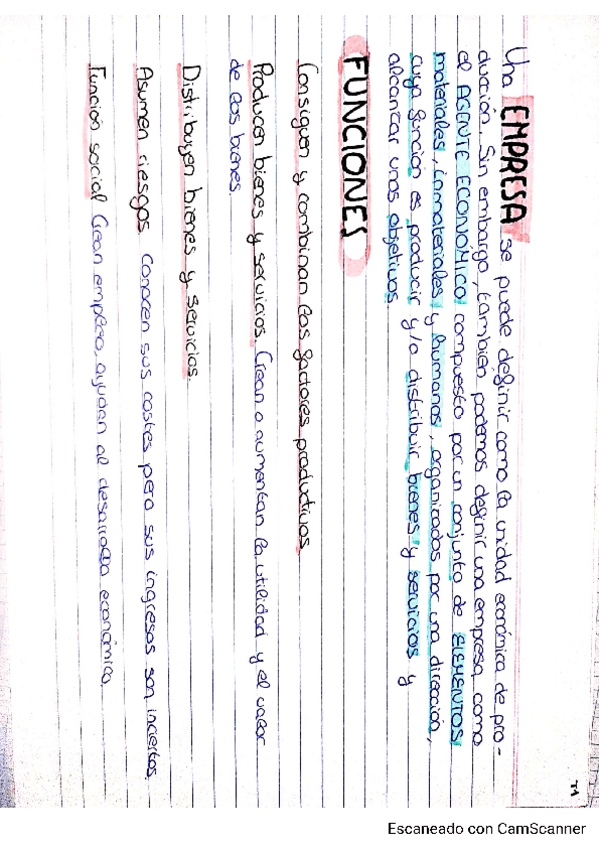 T1
Una EMPRESA se puede definir como la unidad económica de pro-
ducción. Sin embargo, también podemos definir una empresa como
el AGENTE ECONÓMICO compuesto por un conjunto de ELEMENTOS
materiales, inmateriales y humanos, organizados por una dirección,
cuya función es producir y/o distribuir bienes y servicios y
alcanzar unos objetivos.
FUNCIONES
Consiguen y combinan los factores productivos
Producen bienes y servicios. Crean o aumentan la utilidad y el valor
de los bienes.
Distribuyen bienes y servicios.
Asumen riesgos Conocen sus costes pero sus ingresos son inciertos.
Función social Crean empleo, ayudan al desarrollo económico.
Escaneado con CamScanner